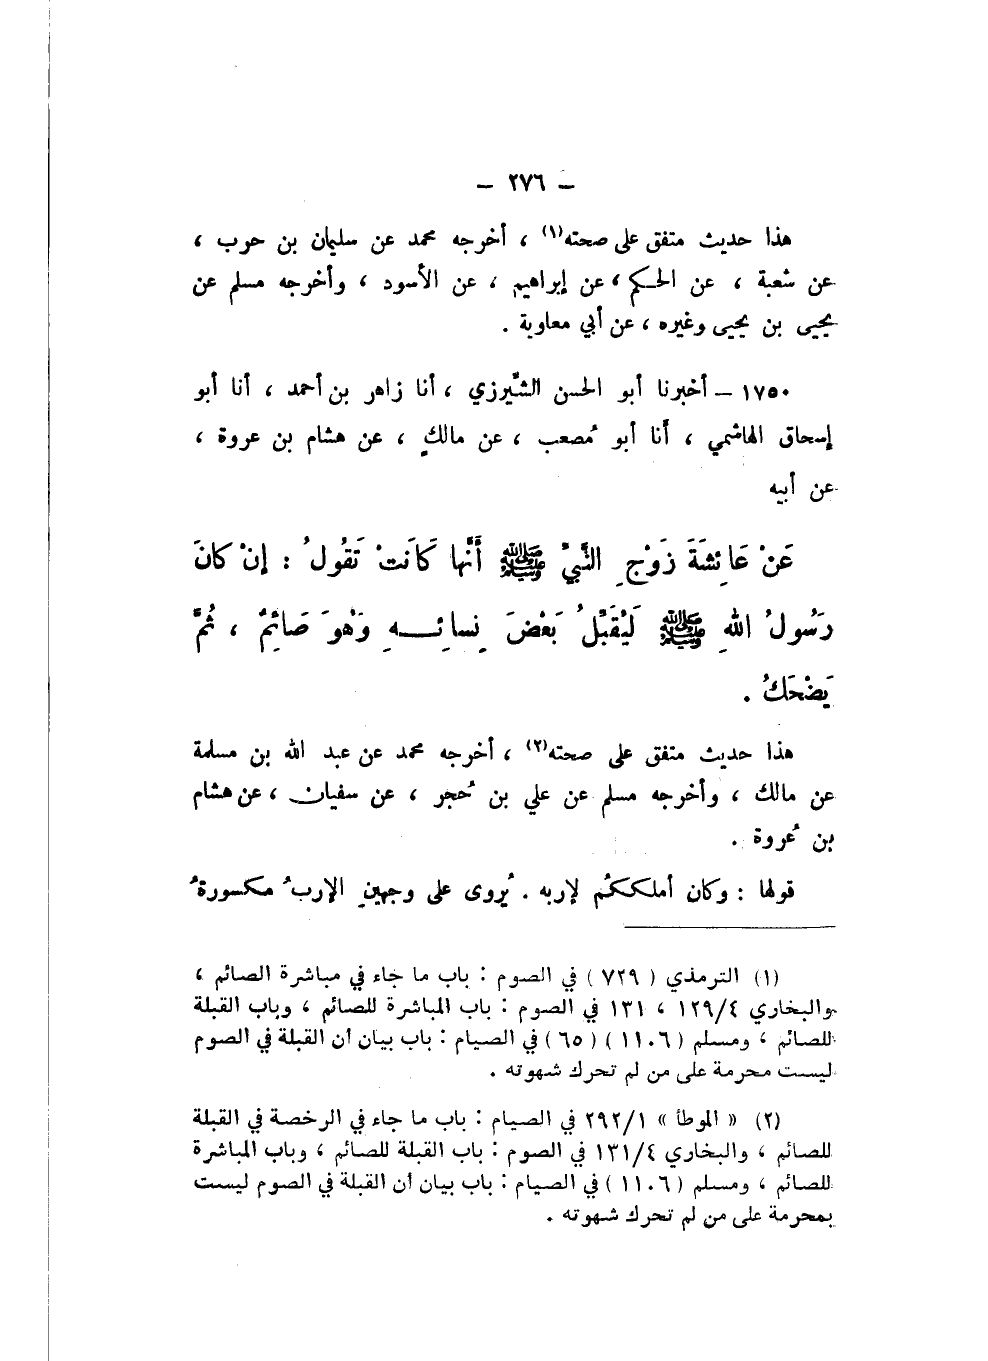 – ٢٧٦ –
هذا حديث متفق على صحته(١) ، أخرجه محمد عن سليمان بن حرب ،
عن شعبة ، عن الحكم ، عن إبراهيم ، عن الأسود ، وأخرجه مسلم عن
يحيى بن يحيى وغيره ، عن أبي معاوية .
١٧٥٠ – أخبرنا أبو الحسن الشِّيرزي ، أنا زاهر بن أحمد ، أنا أبو
إسحاق الهاشمي ، أنا أبو مُصعب ، عن مالكٍ ، عن هشام بن عروة ،
عن أبيه
عَنْ عَائِشَةَ زَوْجِ النَّبِيِّ ﷺ أَنَّها كَانَتْ تَقُولُ : إنْ كانَ
رَسُولُ اللهِ ﷺ لَيُقَبِّلُ بَعْضَ نِسائِـــهِ وَهُوَ صَائِمٌ ، ثُمَّ
يَضْحَكُ .
هذا حديث متفق على صحته(٢) ، أخرجه محمد عن عبد الله بن مسلمة
عن مالك ، وأخرجه مسلم عن علي بن حُجر ، عن سفيان ، عن هشام
بن عُروة .
قولها : وكان أملككُم لإربه . يُروى على وجهينِ الإربُ مكسورةُ
(١) الترمذي ( ٧٢٩ ) في الصوم : باب ما جاء في مباشرة الصائم ،
والبخاري ١٢٩/٤ ، ١٣١ في الصوم : باب المباشرة للصائم ، وباب القبلة
للصائم ، ومسلم ( ١١٠٦ ) ( ٦٥ ) في الصيام : باب بيان أن القبلة في الصوم
ليست محرمة على من لم تحرك شهوته .
(٢) « الموطأ » ٢٩٢/١ في الصيام : باب ما جاء في الرخصة في القبلة
للصائم ، والبخاري ١٣١/٤ في الصوم : باب القبلة للصائم ، وباب المباشرة
للصائم ، ومسلم ( ١١٠٦ ) في الصيام : باب بيان أن القبلة في الصوم ليست
بمحرمة على من لم تحرك شهوته .